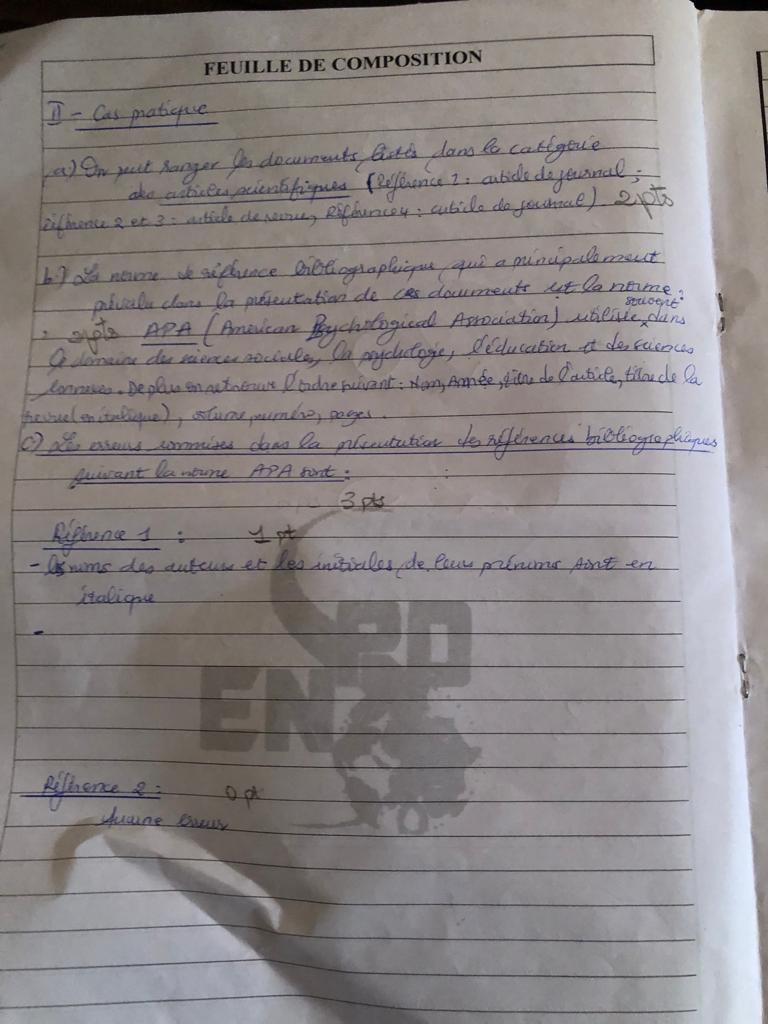 FEUILLE DE COMPOSITION
II - Cas pratique
a) On peut ranger les documents listés dans la catégorie
des articles scientifiques (Référence 1 : article de journal ;
référence 2 et 3 : article de revue, Référence 4 : article de journal) 2 pts
b) La norme de référence bibliographique qui a principalement
prévalu dans la présentation de ces documents est la norme
souvent
2 pts APA (American Psychological Association) utilisée dans
le domaine des sciences sociales, la psychologie, l'éducation et des sciences
connexes. De plus on retrouve l'ordre suivant : Nom, Année, titre de l'article, titre de la
revue (en italique), volume, numéro, pages.
c) Les erreurs commises dans la présentation des références bibliographiques
suivant la norme APA sont :
3 pts
Référence 1 : 1 pt
- les noms des auteurs et les initiales de leurs prénoms sont en
italique
-
EN PD
Référence 2 : 0 pt
Aucune erreur